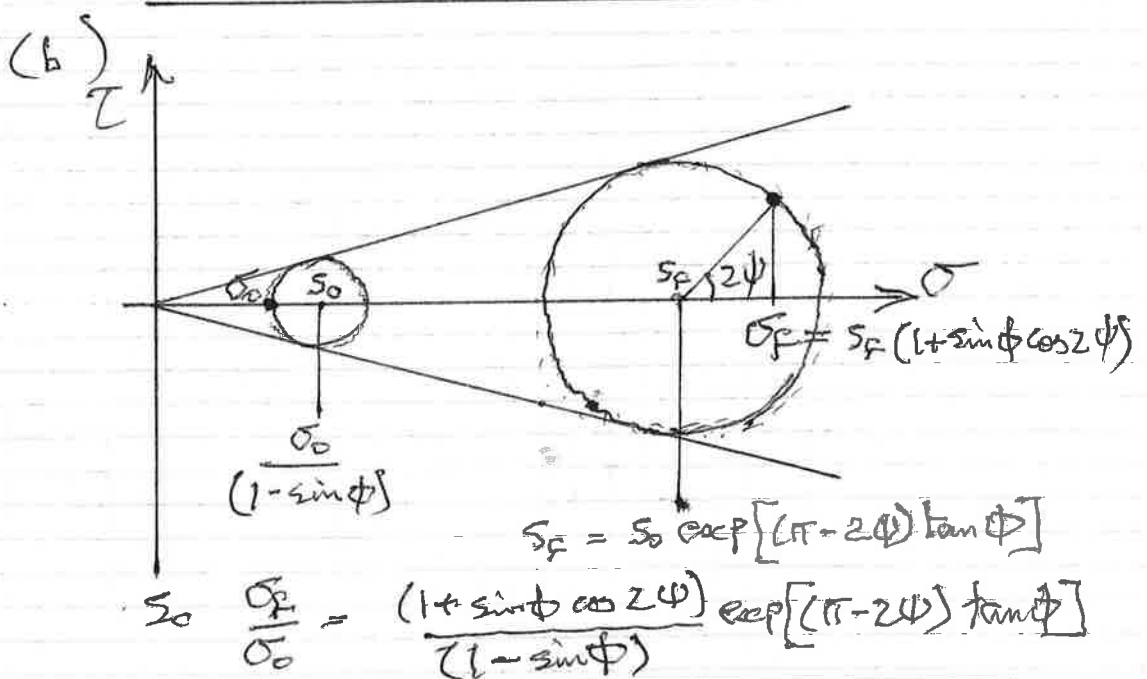 (b)
τ
σ₀
s₀
s_F
2ψ
σ
σ_F = s_F (1+sinϕ cos2ψ)
σ₀ / (1-sinϕ)
s_F = s₀ exp[(π-2ψ) tanϕ]
So σ_F / σ₀ = (1+sinϕ cos 2ψ) / (1-sinϕ) exp[(π-2ψ) tanϕ]